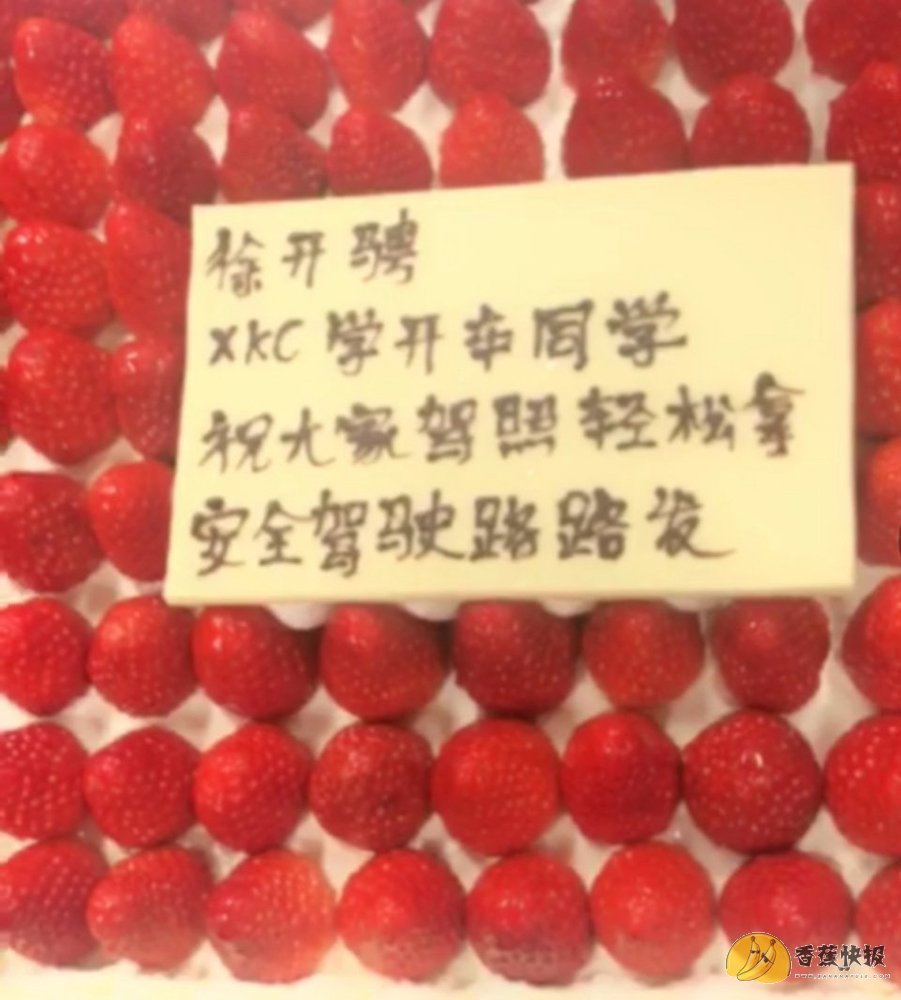 徐开骋
XKC 学开车同学
祝大家驾照轻松拿
安全驾驶路路发
香蕉快报